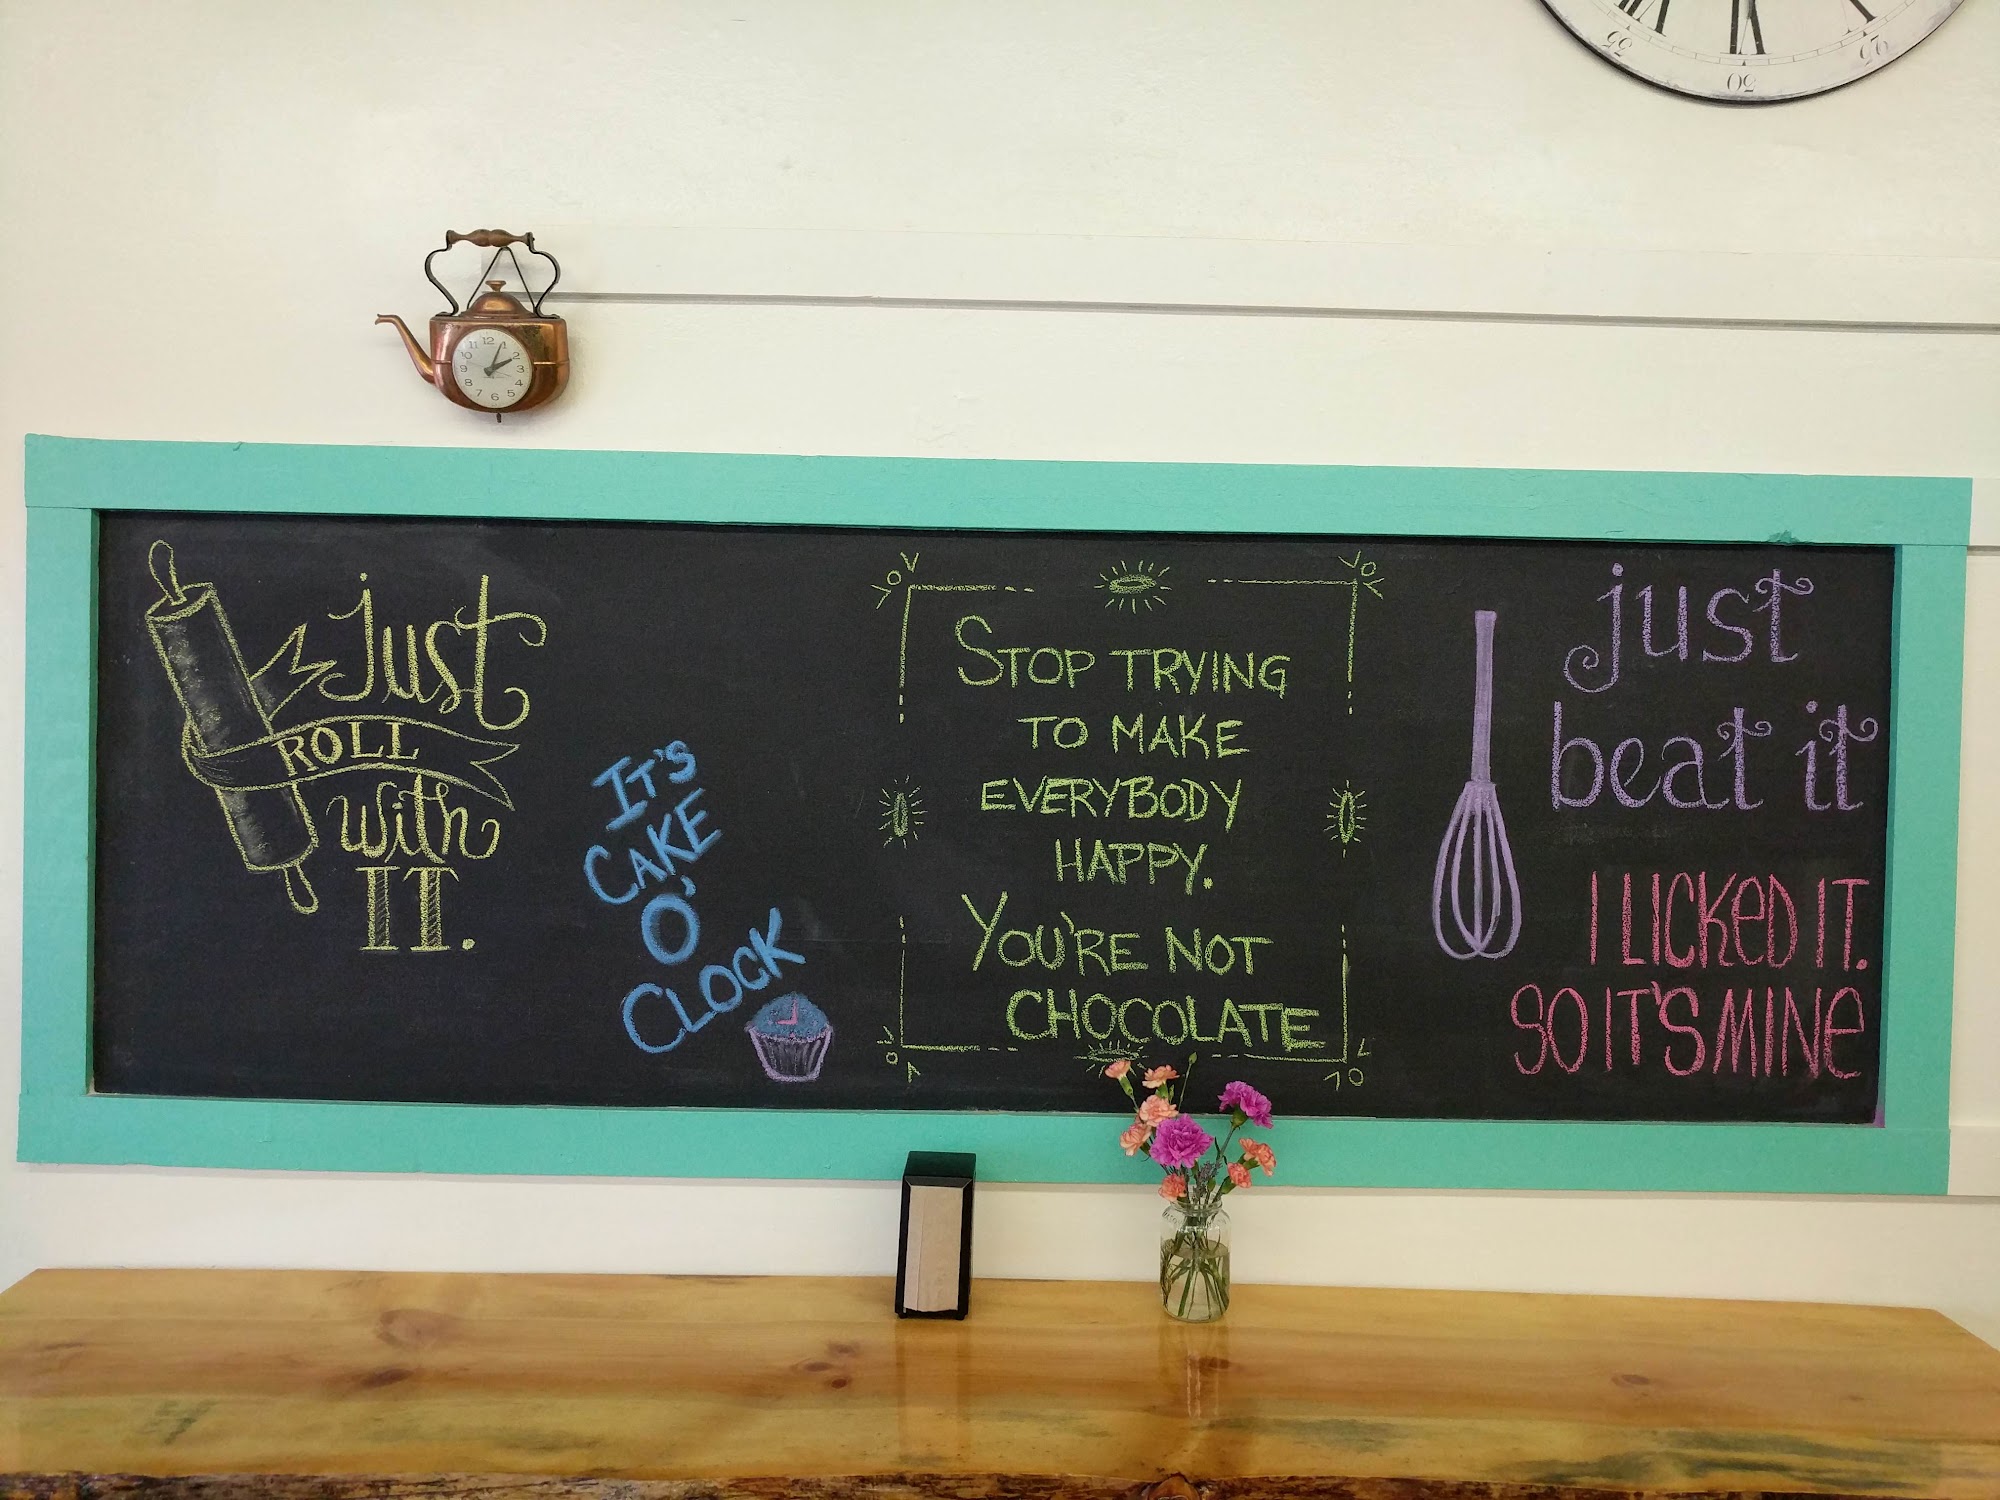 just
ROLL
with
IT.
IT'S
CAKE
O'
CLOCK
STOP TRYING
TO MAKE
EVERYBODY
HAPPY.
YOU'RE NOT
CHOCOLATE
just
beat it
I LICKED IT.
SO IT'S MINE
11 12 1
10 2
9 3
8 4
7 6 5
35 30 25